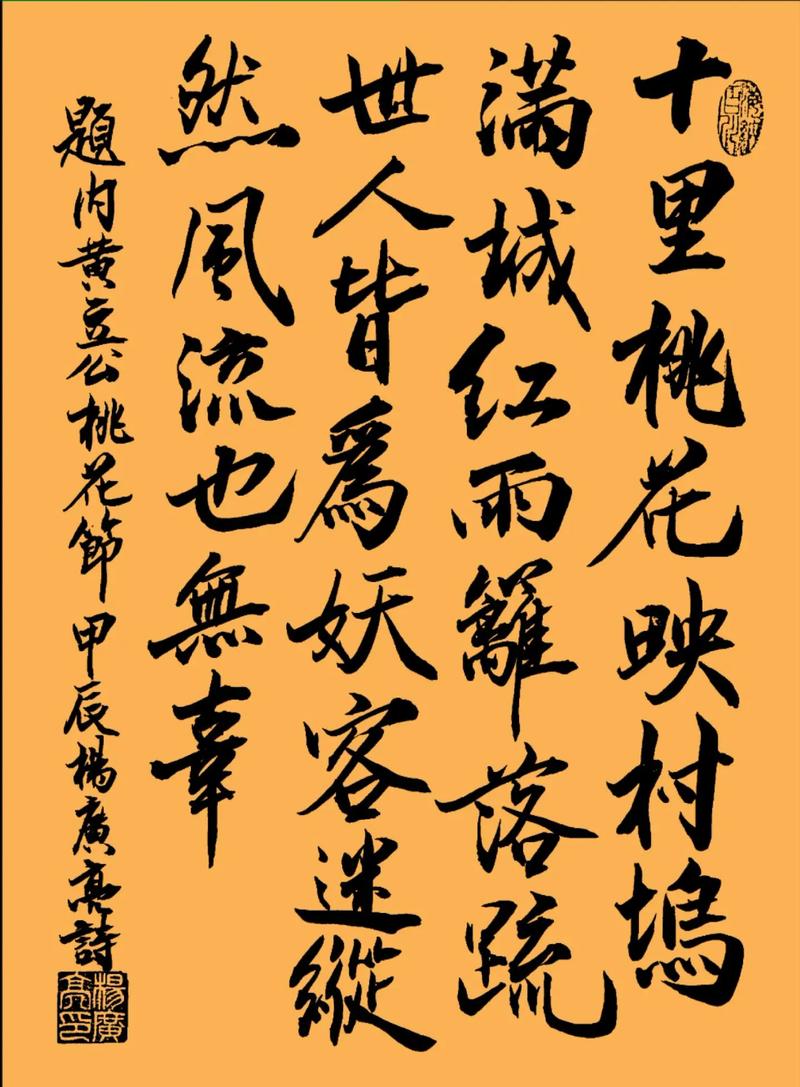 十里桃花映村塢
滿城红雨籬落疏
世人皆爲妖客迷縱
然風流也無辜
題内黄立公桃花節甲辰楊廣亮詩
楊廣亮印